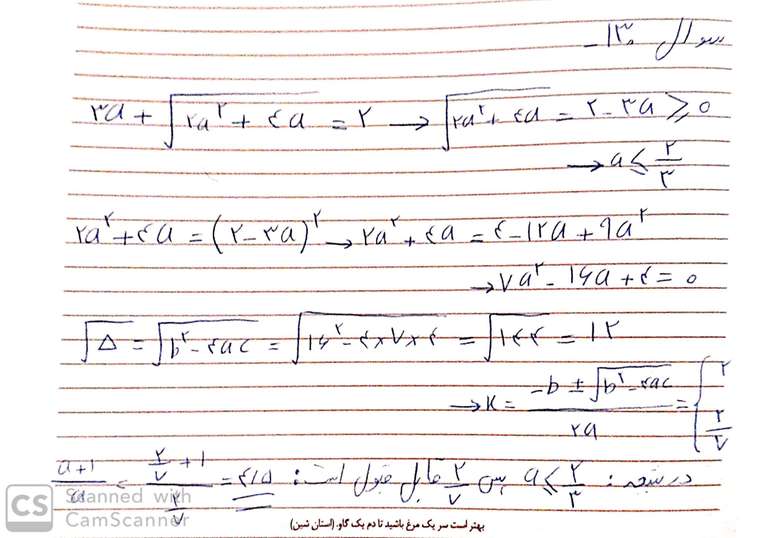 سوال ۱۳۰ -
۳a + √(۲a^۲ + ۴a) = ۲ → √(۲a^۲ + ۴a) = ۲ - ۳a ⩾ ۰
→ a ⩽ ۲/۳
۲a^۲ + ۴a = (۲ - ۳a)^۲ → ۲a^۲ + ۴a = ۴ - ۱۲a + ۹a^۲
→ ۷a^۲ - ۱۶a + ۴ = ۰
√Δ = √(b^۲ - ۴ac) = √(۱۶^۲ - ۴×۷×۴) = √۱۴۴ = ۱۲
→ x = (-b ± √(b^۲ - ۴ac))/۲a = { ۲ , ۲/۷
در نتیجه: a ⩽ ۲/۳ پس ۲/۷ قابل قبول است: (a+۱)/a = (۲/۷ + ۱)/(۲/۷) = ۴/۵
CS Scanned with CamScanner
بهتر است سر یک مرغ باشید تا دم یک گاو. (استان شین)